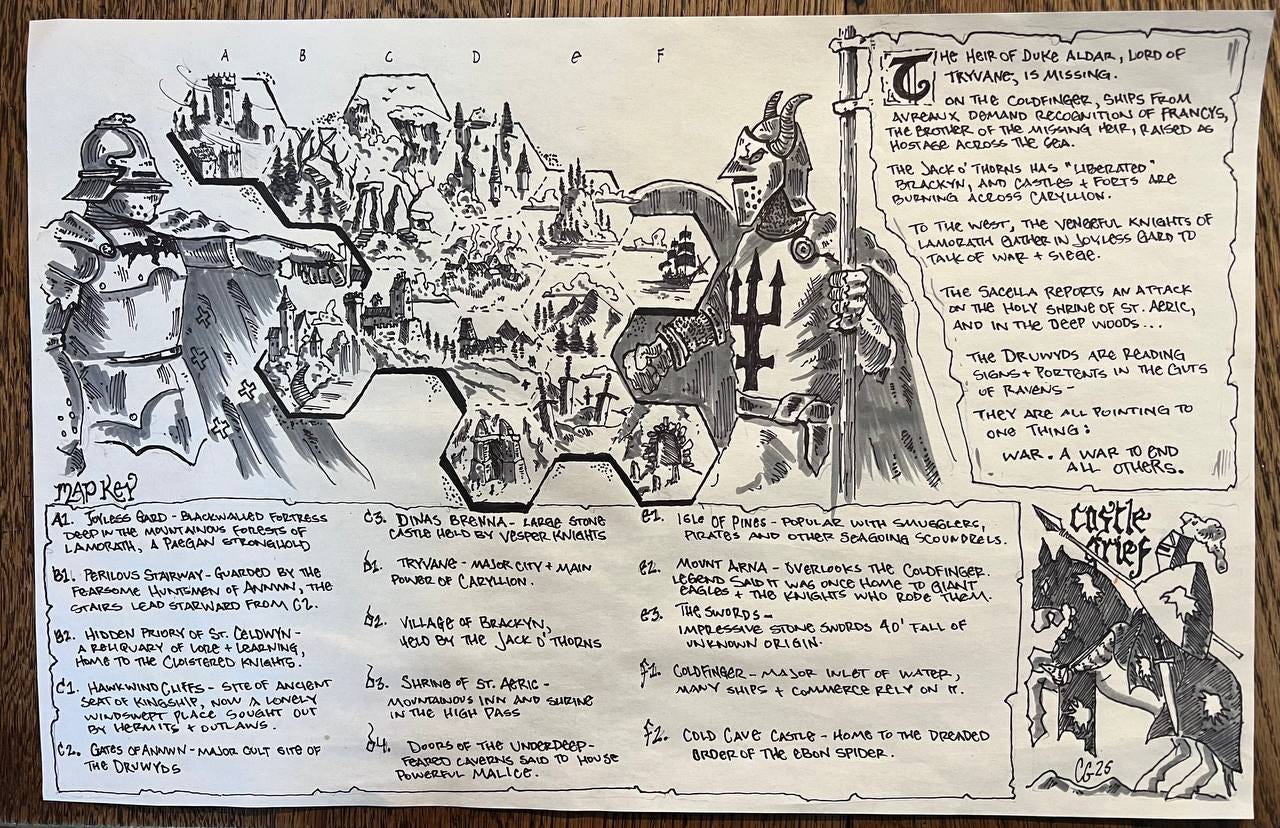 A B C D E F
THE HEIR OF DUKE ALDAR, LORD OF
TRYVANE, IS MISSING.
ON THE COLDFINGER, SHIPS FROM
AVREAUX DEMAND RECOGNITION OF FRANCYS,
THE BROTHER OF THE MISSING HEIR, RAISED AS
HOSTAGE ACROSS THE SEA.
THE JACK O' THORNS HAS "LIBERATED"
BRACKYN, AND CASTLES + FORTS ARE
BURNING ACROSS CARYLLION.
TO THE WEST, THE VENGEFUL KNIGHTS OF
LAMORATH GATHER IN JOYLESS GARD TO
TALK OF WAR + SIEGE.
THE SACELLA REPORTS AN ATTACK
ON THE HOLY SHRINE OF ST. AERIC,
AND IN THE DEEP WOODS...
THE DRUWYDS ARE READING
SIGNS + PORTENTS IN THE GUTS
OF RAVENS -
THEY ARE ALL POINTING TO
ONE THING:
WAR. A WAR TO END
ALL OTHERS.
MAP KEY
A1. JOYLESS GARD - BLACKWALLED FORTRESS
DEEP IN THE MOUNTAINOUS FORESTS OF
LAMORATH, A PAEGAN STRONGHOLD
B1. PERILOUS STAIRWAY - GUARDED BY THE
FEARSOME HUNTSMEN OF ANNWN, THE
STAIRS LEAD STARWARD FROM C2.
B2. HIDDEN PRIORY OF ST. CELDWYN -
A RELIQUARY OF LORE + LEARNING,
HOME TO THE CLOISTERED KNIGHTS.
C1. HAWKWIND CLIFFS - SITE OF ANCIENT
SEAT OF KINGSHIP, NOW A LONELY
WINDSWEPT PLACE SOUGHT OUT
BY HERMITS + OUTLAWS.
C2. GATES OF ANNWN - MAJOR CULT SITE OF
THE DRUWYDS
C3. DINAS BRENNA - LARGE STONE
CASTLE HELD BY VESPER KNIGHTS
D1. TRYVANE - MAJOR CITY + MAIN
POWER OF CARYLLION.
D2. VILLAGE OF BRACKYN,
HELD BY THE JACK O' THORNS
D3. SHRINE OF ST. AERIC -
MOUNTAINOUS INN AND SHRINE
IN THE HIGH PASS
D4. DOORS OF THE UNDERDEEP -
FEARED CAVERNS SAID TO HOUSE
POWERFUL MALICE.
E1. ISLE OF PINES - POPULAR WITH SMUGGLERS,
PIRATES AND OTHER SEAGOING SCOUNDRELS.
E2. MOUNT ARNA - OVERLOOKS THE COLDFINGER.
LEGEND SAID IT WAS ONCE HOME TO GIANT
EAGLES + THE KNIGHTS WHO RODE THEM.
E3. THE SWORDS -
IMPRESSIVE STONE SWORDS 40' TALL OF
UNKNOWN ORIGIN.
F1. COLDFINGER - MAJOR INLET OF WATER,
MANY SHIPS + COMMERCE RELY ON IT.
F2. COLD CAVE CASTLE - HOME TO THE DREADED
ORDER OF THE EBON SPIDER.
castle
grief
CG25